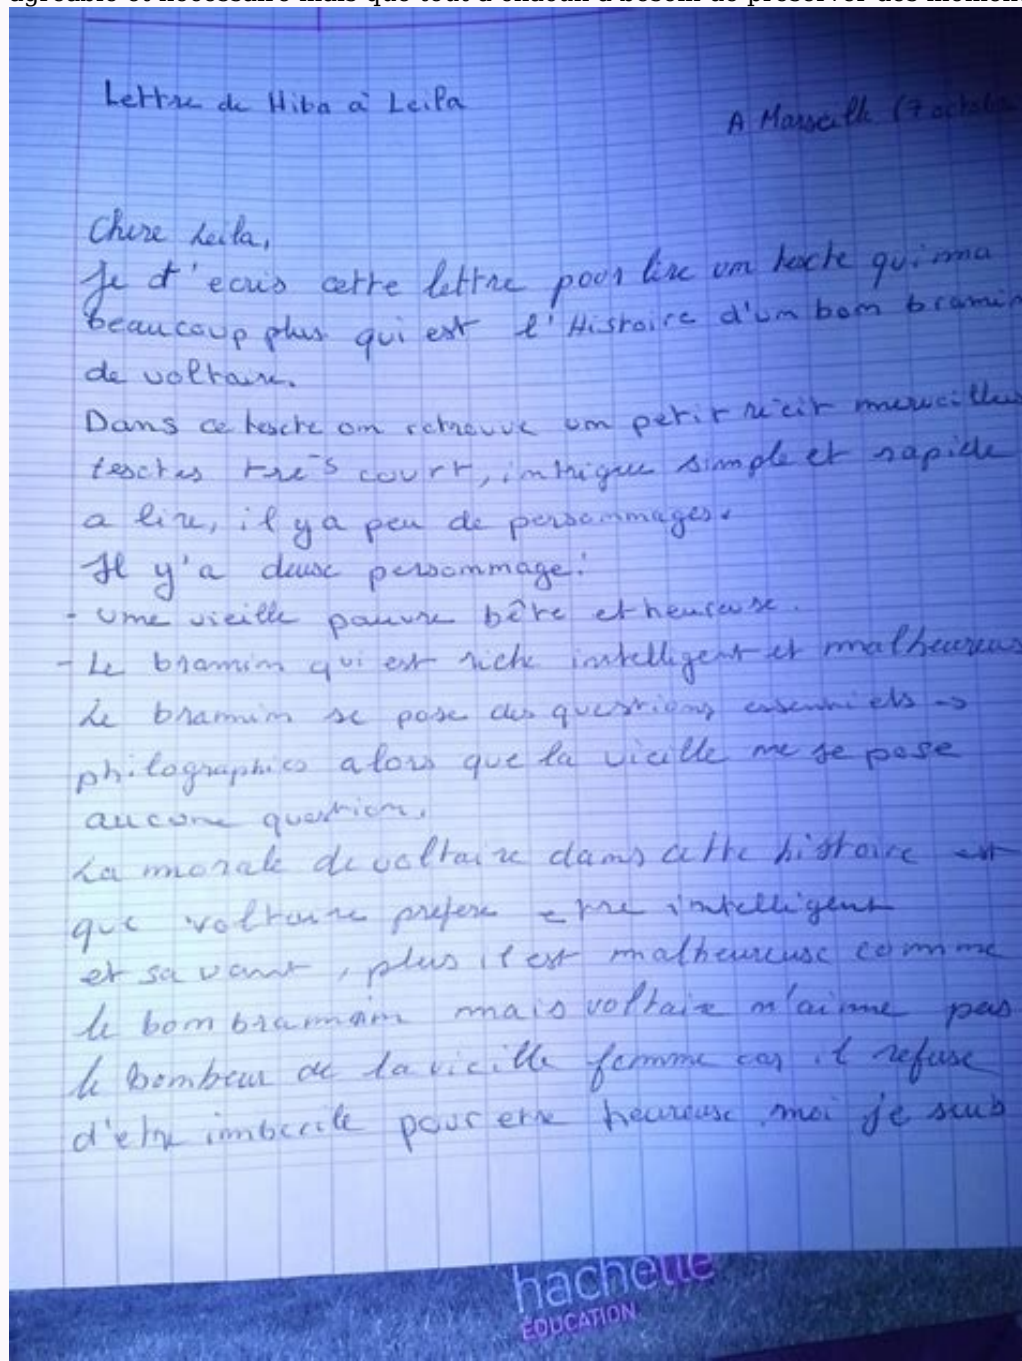 agréable et nécessaire mais que tout à chacun a besoin de préserver des momen
Lettre de Hiba à Leila
A Marseille 17 octobre
Chere Leila,
Je t'ecris cette lettre pour lire um texte qui ma
beaucoup plus qui est l'Histoire d'um bom bramin
de voltaire.
Dans ce texte om retrouve um petit récit merveilleus
textes tres court, intrigue simple et rapide
a lire, il ya peu de persommages.
Il y'a deux persommage:
- Ume vieille pauvre bête et heureuse.
- Le bramin qui est riche intelligent et malheureus
Le bramin se pose des questions essentiels ->
philographies alors que la vieille me se pose
aucune question.
La morale de voltaire dams cette histoire est
que voltaire prefere etre intelligent
et savant, plus il est malheureuse comme
le bom bramain mais voltaire m'aime pas
le bomheur de la vieille femme car il refuse
d'etre imbecile pour etre heureuse. moi je suis
hachette
ÉDUCATION